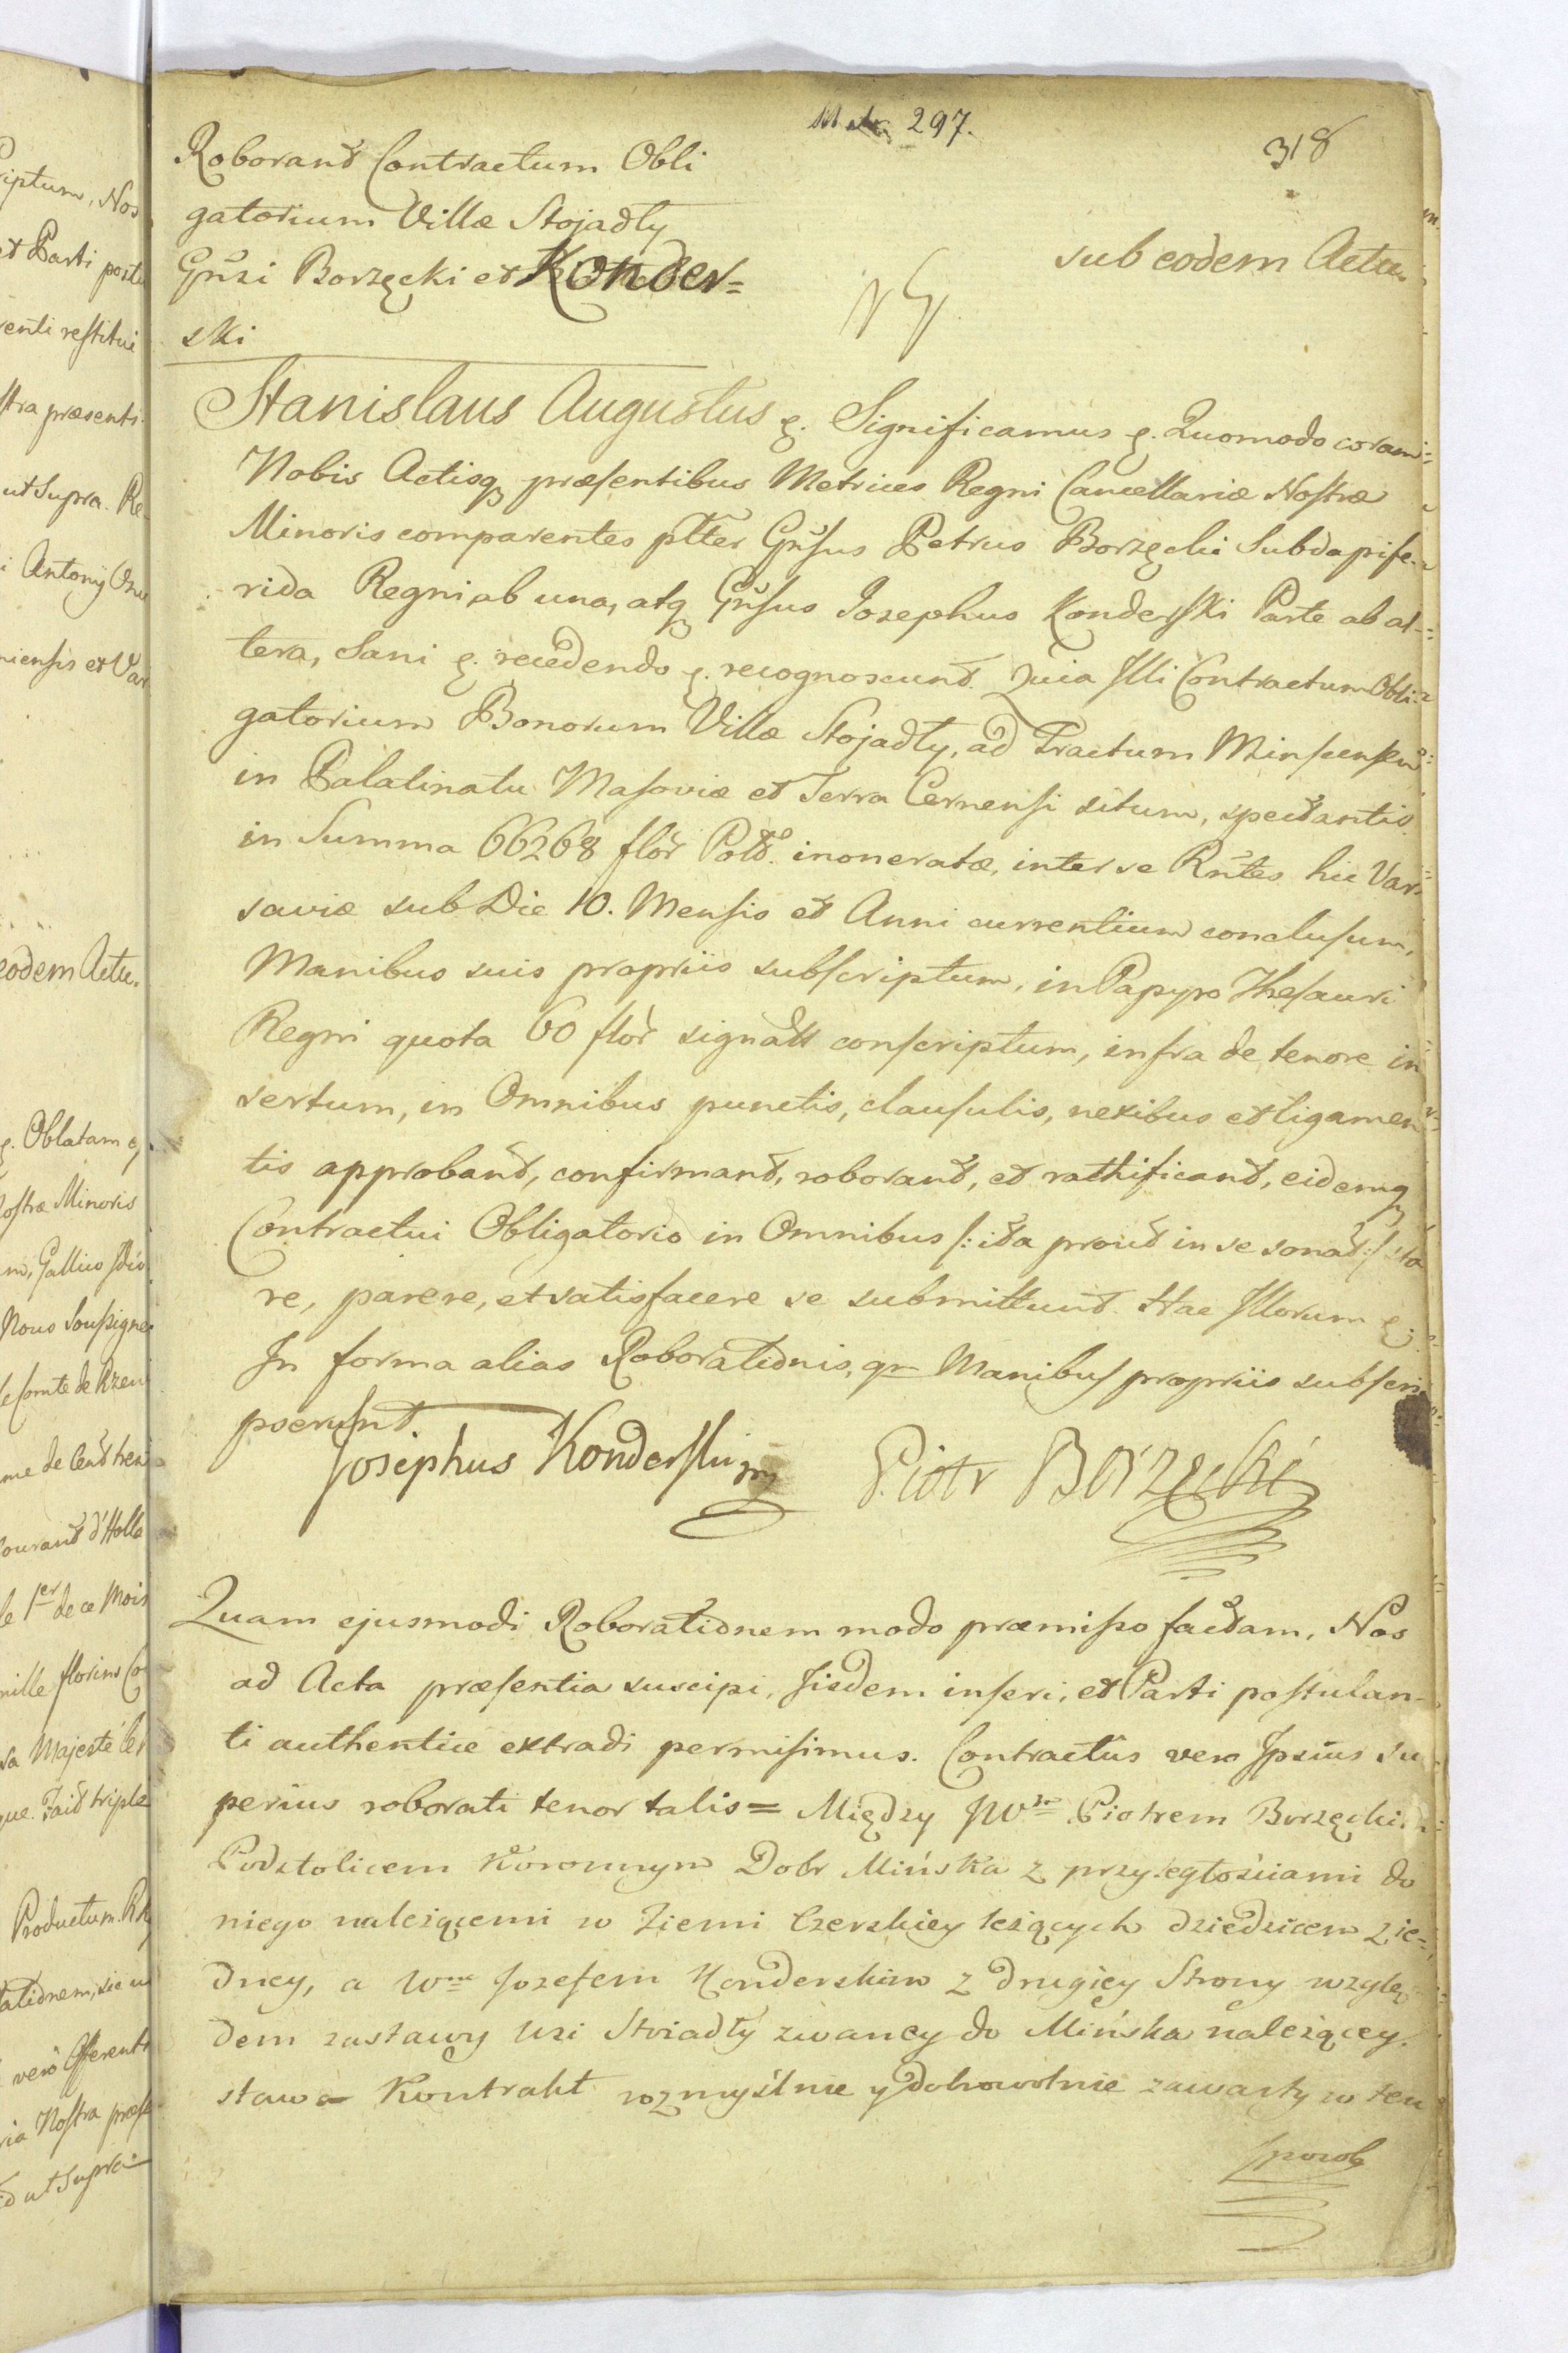 297.
318
Roborant Contractum Obli
gatorium Villæ Stojadły
Gn̄si Borzęcki et Konder=
ski
sub eodem Actu
Stanislaus Augustus &. Significamus &. Quomodo coram
Nobis Actisq præsentibus Metrices Regni Cancellariæ Nostræ
Minoris comparentes pltter Gn̄sus Petrus Borzęcki Subdapife-
rida Regni ab una, atq Gn̄sus Josephus Konderski Parte ab al-
tera, Sani &. recedendo &. recognoscunt. Quia Illi Contractum Obli-
gatorium Bonorum Villæ Stojadły, ad Tractum Minscensem
in Palatinatu Masoviæ et Terra Cernensi situm, spectantis
in Summa 66268 flor Pold. inoneratæ, inter se Rn̄tes hic Var-
saviæ sub Die 10. Mensis et Anni currentium conclusum,
Manibus suis propriis subscriptum, in Papyro Thesauri
Regni quota 60 flor signatt conscriptum, infra de tenore in
sertum, in Omnibus punctis, clausulis, nexibus et ligamen
tis approbant, confirmant, roborant, et rathificant, eidemq
Contractui Obligatorio in Omnibus /: ita prout in se sonat :/ sta
re, parere, et satisfacere se submittunt. Hac Illorum &.
In forma alias Roborationis, qr Manibus propriis subscri
pserunt.
Josephus Konderski mp Piotr Borzęcki
Quam ejusmodi Roborationem modo præmisso factam, Nos
ad Acta præsentia suscipi, Jisdem inseri, et Parti postulan-
ti authentice extradi permisimus. Contractûs vero Ipsius su
perius roborati tenor talis = Między JWm Piotrem Borzęckim
Podstolicem Koronnym Dobr Mińska z przyległościami do
niego należącemi w Ziemi Czerskiey leżących dziedzicem z ie-
dney, a Wm Jozefem Konderskim z drugiey Strony wzglę
dem zastawy wsi Stoiadły zwaney do Mińska należącey.
stawa Kontrakt rozmyślnie y dobrowolnie zawarty w ten
sposob
iptum, Nos
et Parti postu
venti restitui
stra præsenti.
ut Supra. Re
i Antonÿ Onu
niensis et Var
eodem Actu.
&. Oblatam &
Nostræ Minoris
Nous Soussigne
le Comte de Rzew
me de Cent tren
Courant d'Holla
le 1er de ce Mois
mille florins Co
sa Majesté
que. Fait triple
Productum.
ationem, sic
vero Offerenti
ria Nostra præse
ut Supra